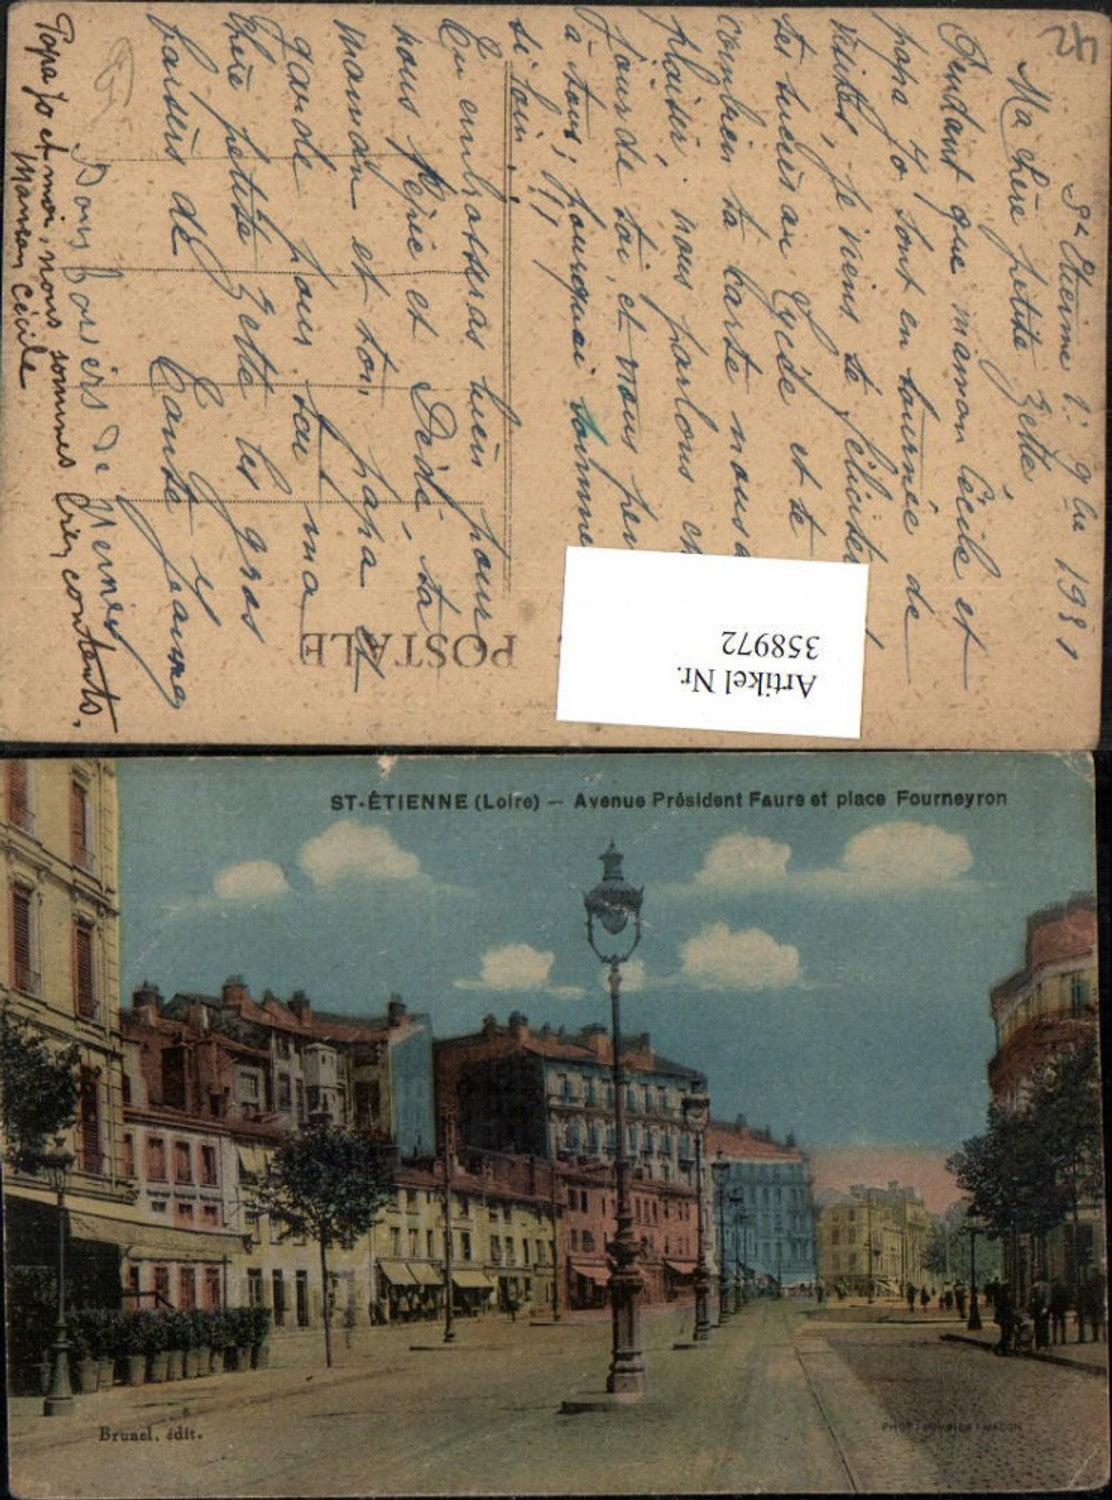 42
St Etienne 1. 9bre 1931
Ma chère petite Zette
Pendant que maman Cécile et
papa Jo sont en tournée de
visites, je viens te féliciter
tes succès au Lycée et te
combien ta carte nous a
plaisir. nous parlons ch
jour de toi, et nous pen
à tous; pourquoi
si loin. !!!
Tu embrasseras bien pour
nous Pépie et Dédé, ta
maman et toi, papa et
garde pour toi ma
chère petite Zette les gros
baisers de
Tante Jeanne
Bons baisers de
Papa Jo et moi, nous sommes bien contents.
Maman Cécile
POSTALE
Artikel Nr.
358972
ST-ÉTIENNE (Loire) — Avenue Président Faure et place Fourneyron
Brunel, édit.